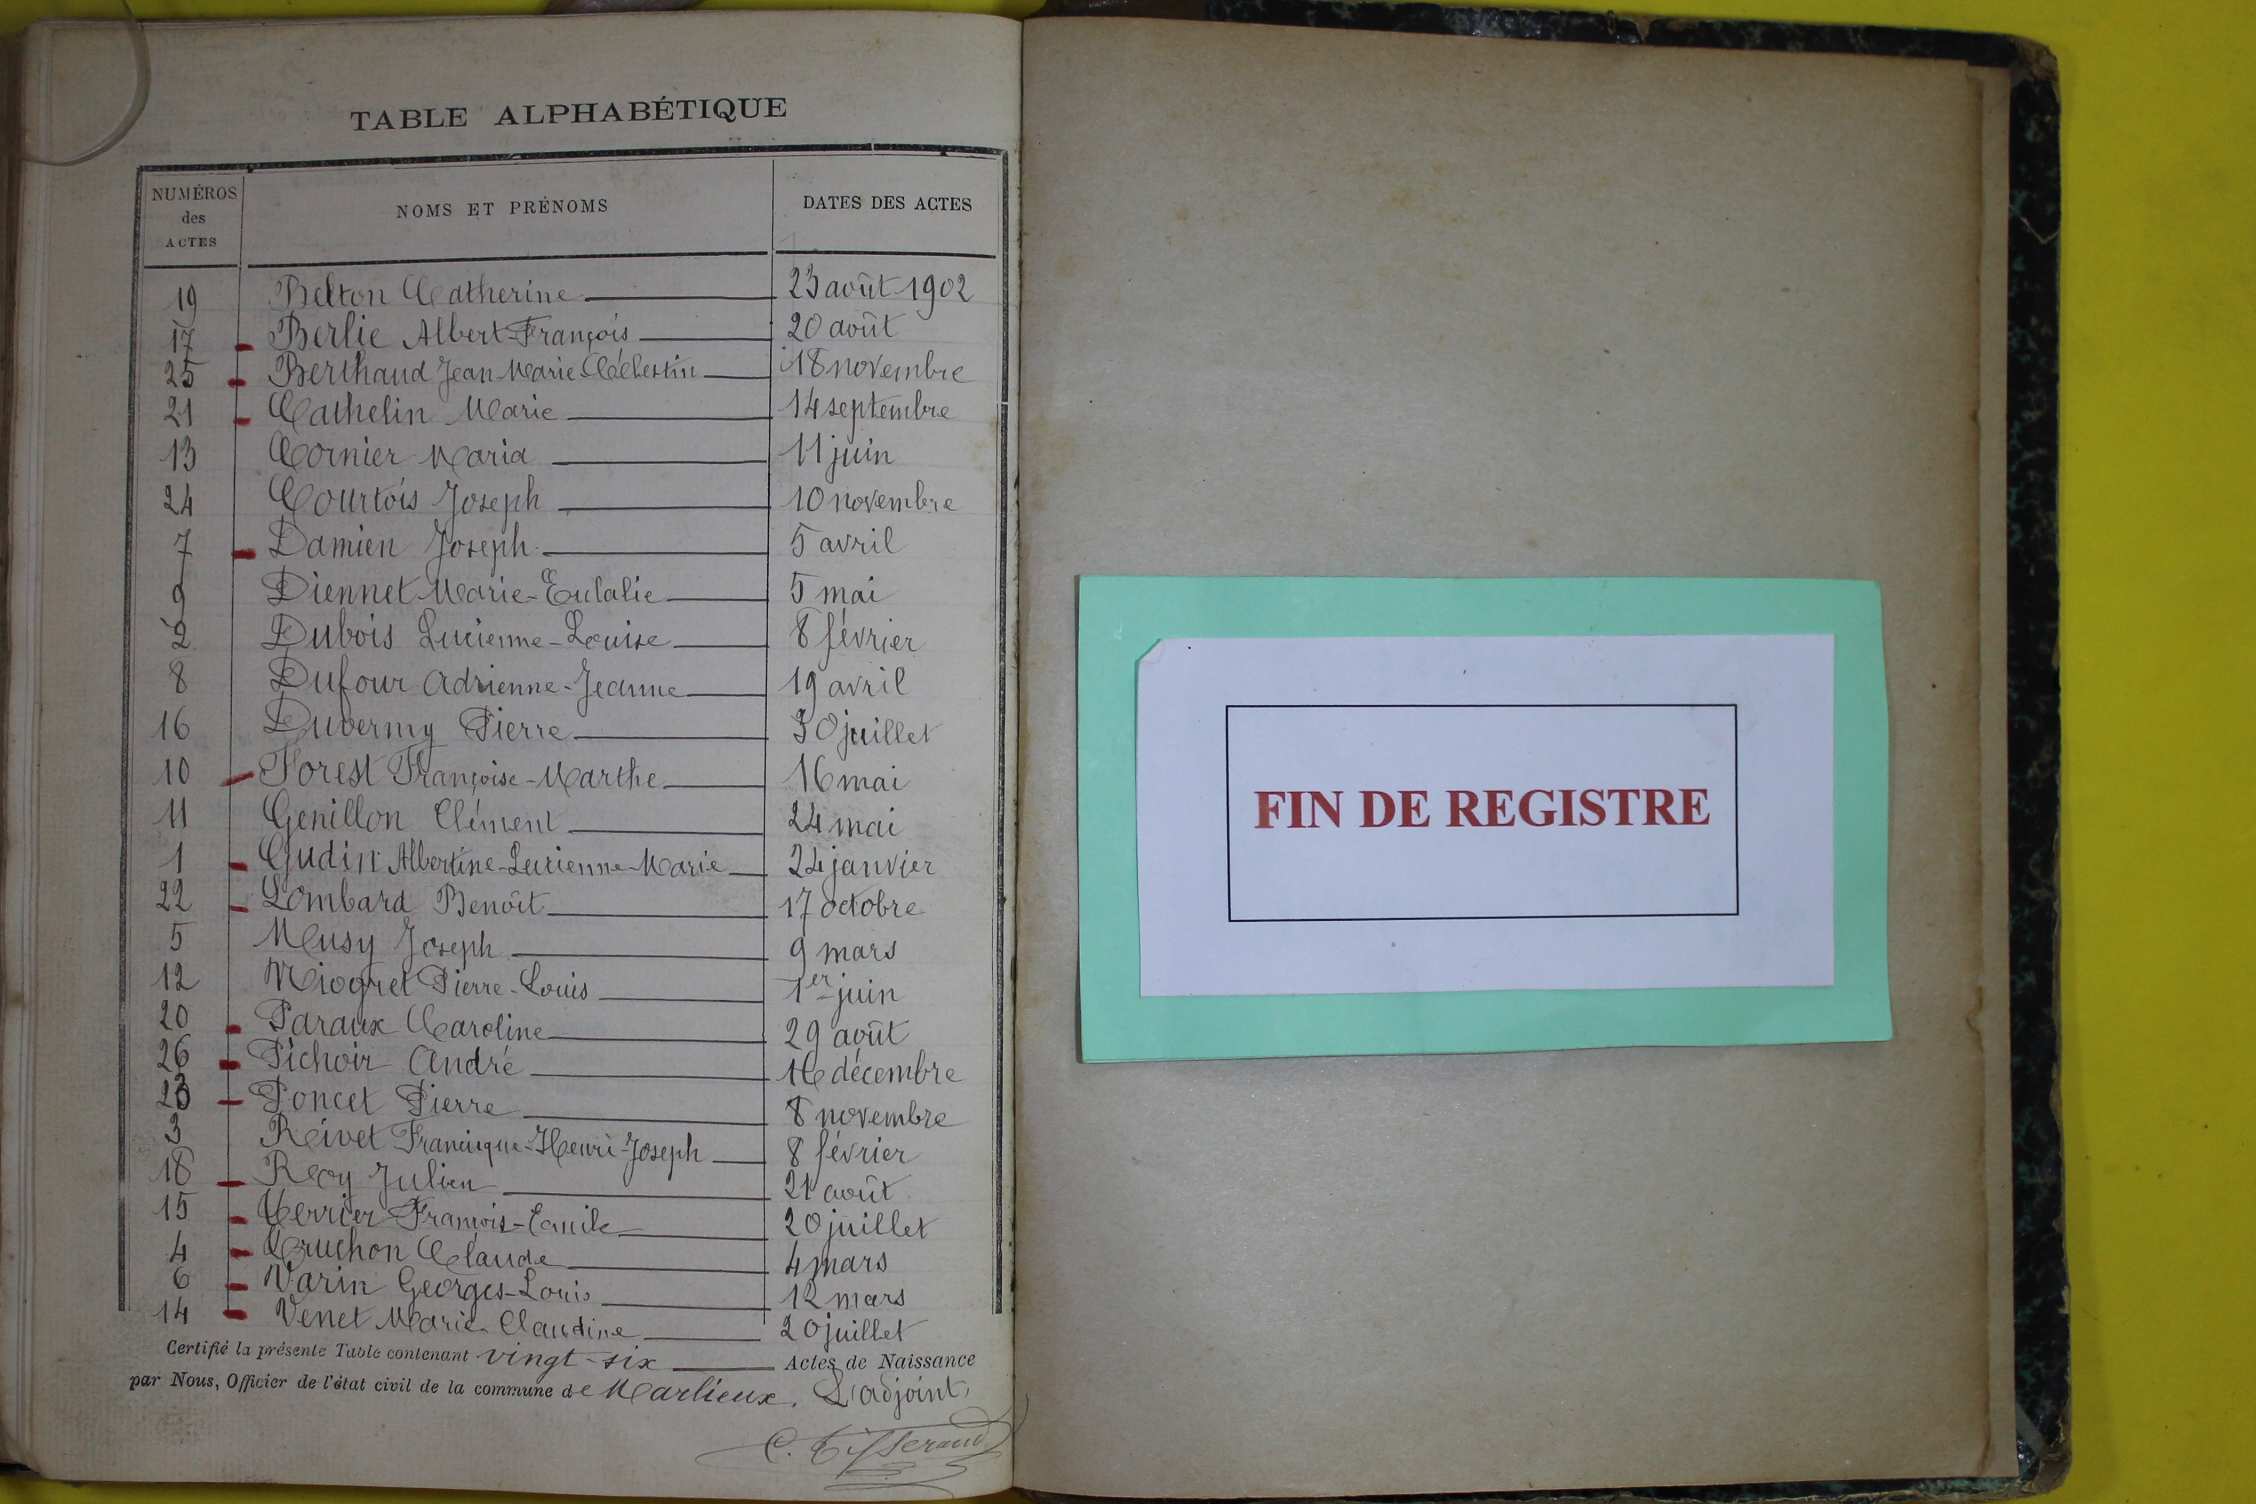 TABLE ALPHABÉTIQUE
NUMÉROS des ACTES NOMS ET PRÉNOMS DATES DES ACTES
19 Belton Catherine 23 août 1902
17 Berlie Albert-François 20 août
25 Berthaud Jean-Marie-Célestin 18 novembre
21 Cathelin Marie 14 septembre
13 Cornier Maria 11 juin
24 Courtois Joseph 10 novembre
7 Damien Joseph 5 avril
9 Diennet Marie-Eulalie 5 mai
2 Dubois Lucienne-Louise 8 février
8 Dufour Adrienne-Jeanne 19 avril
16 Duvermy Pierre 30 juillet
10 Forest Françoise-Marthe 16 mai
11 Genillon Clément 24 mai
1 Gudin Albertine-Lucienne-Marie 24 janvier
22 Lombard Benoît 17 octobre
5 Musy Joseph 9 mars
12 Niogret Pierre-Louis 1er juin
20 Paraux Caroline 29 août
26 Pichoir André 16 décembre
23 Poncet Pierre 8 novembre
3 Rivet Francisque-Henri-Joseph 8 février
18 Roy Julien 21 août
15 Terrier François-Emile 20 juillet
4 Truchon Claude 4 mars
6 Varin Georges-Louis 12 mars
14 Venet Marie-Claudine 20 juillet
Certifié la présente Table contenant vingt-six Actes de Naissance
par Nous, Officier de l'état civil de la commune de Marlieux. L'adjoint,
C. Tisserand
FIN DE REGISTRE